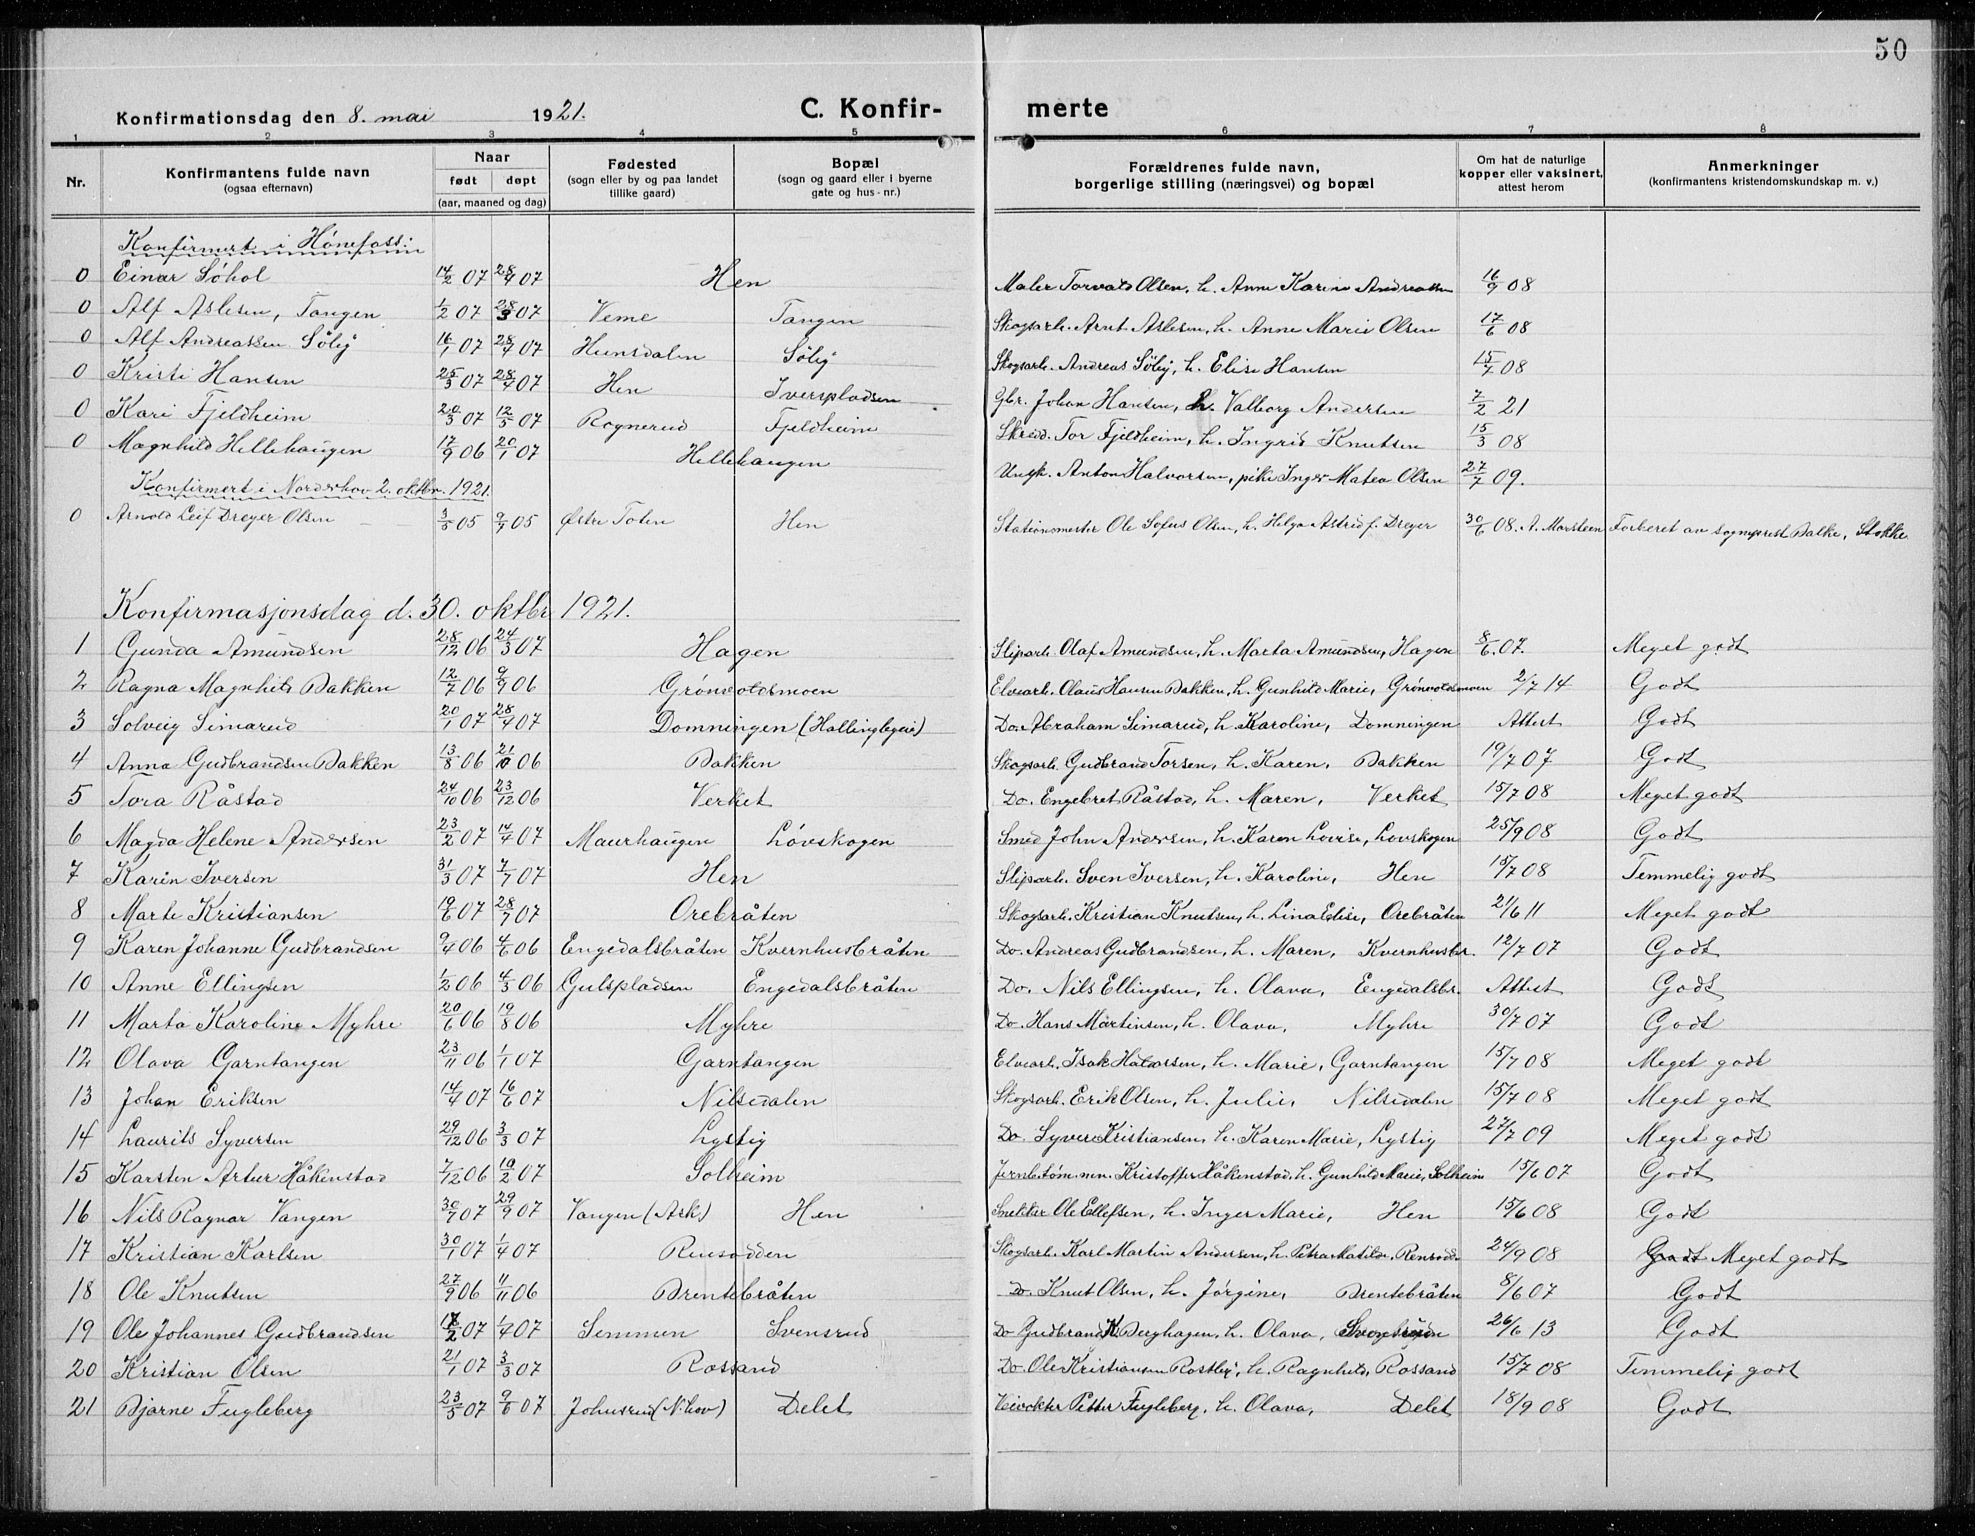 50
Konfirmationsdag den 8. mai 1921. C. Konfirmerte
1 2 3 4 5 6 7 8
Nr. Konfirmantens fulde navn (ogsaa efternavn) Naar født døpt (aar, maaned og dag) Fødested (sogn eller by og paa landet tillike gaard) Bopæl (sogn og gaard eller i byerne gate og hus-nr.) Forældrenes fulde navn, borgerlige stilling (næringsvei) og bopæl Om hat de naturlige kopper eller vaksinert, attest herom Anmerkninger (konfirmantens kristendomskundskap m. v.)
Konfirmert i Hønefoss:
0 Einar Söhol 14/2 07 28/4 07 Hen Maler Torvald Olsen, h. Anne Karine Andreassen 16/9 08
0 Alf Aslesen, Tangen 1/2 07 28/3 07 Veme Tangen Skogsarb. Arnt Aslesen, h. Anne Marie Olsen 17/6 08
0 Alf Andreassen Sölig 16/1 07 28/4 07 Hensdalen Sölig Skogsarb. Andreas Sölig, h. Elise Hansen 15/7 08
0 Kristi Hansen 25/3 07 28/4 07 Hen Iverspladsen Gbr. Johan Hansen, h. Valborg Andersen 7/2 21
0 Kari Fjeldheim 20/3 07 12/5 07 Rognerud Fjeldheim Skredd. Tor Fjeldheim, h. Ingrid Knutsen 15/3 08
0 Magnhild Hellehaugen 17/9 06 20/1 07 Hellehaugen Ungk. Anton Halvorsen, pike Inger Matea Olsen 27/7 09.
Konfirmert i Norderhov 2. oktbr. 1921.
0 Arnold Leif Dreyer Olsen 3/5 05 9/7 05 Østre Toten Hen Stationsmester Ole Sofus Olsen, h. Helga Astrid f. Dreyer 30/6 08. A. Marsteen Forberet av sogneprest Balke, Stokke
Konfirmasjonsdag d. 30. oktbr. 1921.
1 Gunda Amundsen 28/12 06 24/3 07 Hagen Sliparb. Olaf Amundsen, h. Marta Amundsen, Hagen 8/6 07. Meget godt
2 Ragna Magnhild Bakken 12/7 06 9/9 06 Grönvoldsmoen Elvearb. Olaus Hansen Bakken, h. Gunhild Marie, Grönvoldsmoen 2/7 14 Godt
3 Solveig Simarud 20/1 07 28/4 07 Domningen (Hallingbygein) Do. Abraham Simarud, h. Karoline, Domningen Attest Godt
4 Anna Gudbrandsen Bakken 13/8 06 21/10 06 Bakken Skogsarb. Gudbrand Torsen, h. Karen, Bakken 19/7 07 Godt
5 Tora Råstad 24/10 06 23/12 06 Verket Do. Engebret Råstad, h. Maren, Verket 15/7 08 Meget godt
6 Magda Helene Andersen 23/2 07 14/4 07 Maurhaugen Lövskogen Smed John Andersen, h. Karen Lovise, Lovskogen 25/9 08 Godt
7 Karin Iversen 31/3 07 7/7 07 Hen Sliparb. Sven Iversen, h. Karoline, Hen 15/7 08 Temmelig godt
8 Marte Kristiansen 19/6 07 28/7 07 Orebråten Skogsarb. Kristian Knutsen, h. Lina Elise, Orebråten 21/6 11 Meget godt
9 Karen Johanne Gudbrandsen 9/4 06 4/6 06 Engedalsbråten Kvernhusbråten Do. Andreas Gudbrandsen, h. Maren, Kvernhusbr. 12/7 07 Godt
10 Anne Ellingsen 1/2 06 4/3 06 Gulspladsen Engedalsbråten Do. Nils Ellingsen, h. Olava, Eengedalsbr. Attest Godt
11 Marta Karoline Myhre 20/6 06 19/8 06 Myhre Do. Hans Martinsen, h. Olava, Myhre 30/7 07 Godt
12 Olava Garntangen 23/11 06 1/1 07 Garntangen Elvearb. Isak Halvorsen, h. Marie, Garntangen 15/7 08 Meget godt
13 Johan Eriksen 14/4 07 16/6 07 Nilsedalen Skogsarb. Erik Olsen, h. Julie, Nilsedalen 15/7 08 Meget godt
14 Laurits Syversen 29/12 06 3/3 07 Lystig Do. Syver Kristiansen, h. Karen Marie, Lystig 27/7 09 Meget godt
15 Karsten Artur Håkenstad 7/12 06 10/2 07 Solheim Jernbetöm.mn. Kristoffer Håkenstad, h. Gunhild Marie, Solheim 15/6 07 Godt
16 Nils Ragnar Vangen 30/7 07 29/9 07 Vangen (Ask) Hen Snekker Ole Ellefsen, h. Inger Marie, Hen 15/6 08 Godt
17 Kristian Karlsen 30/1 07 1/4 07 Rensodden Skogsarb. Karl Martin Andersen, h. Petra Matilde, Rensodd. 24/9 08 Godt Meget godt
18 Ole Knutsen 27/9 06 11/11 06 Brentebråten Do. Knut Olsen, h. Jörgine, Brentebråten 8/6 07 Godt
19 Ole Johannes Gudbrandsen 07 1/4 07 Semmen Svensrud Do Gudbrand K. Berghagen, h. Olava, 26/6 13 Godt
20 Kristian Olsen 21/1 07 3/3 07 Rossand Do. Ole Kristiansen Rostbg, h. Ragnhild, Rossand 15/7 08 Temmelig godt
21 Bjarne Fugleberg 23/5 07 9/6 07 Johnsrud (N.hov) Delet Veivokter Petter Fugleberg, h. Olava, Delet 18/9 08 Godt